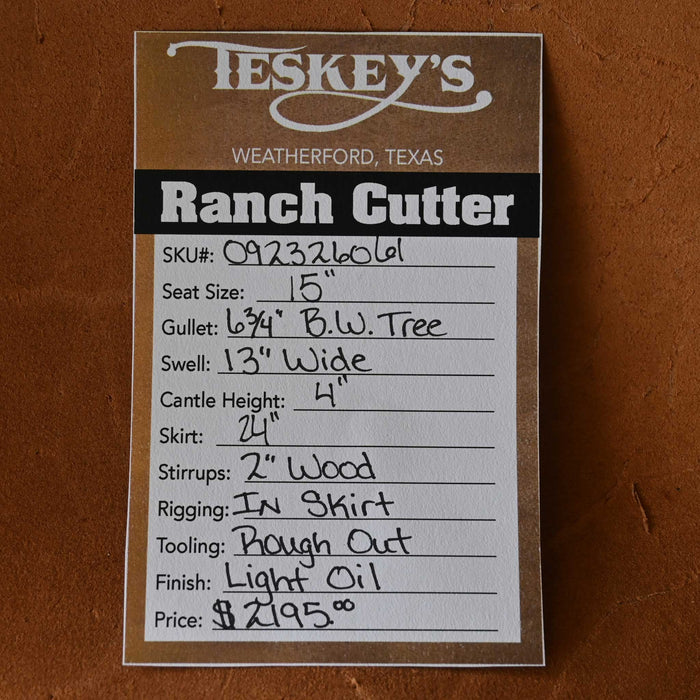 TESKEY'S
WEATHERFORD, TEXAS
Ranch Cutter
SKU#: 092326061
Seat Size: 15"
Gullet: 6¾" B.W. Tree
Swell: 13" Wide
Cantle Height: 4"
Skirt: 24"
Stirrups: 2" Wood
Rigging: IN Skirt
Tooling: Rough Out
Finish: Light Oil
Price: $2195.00